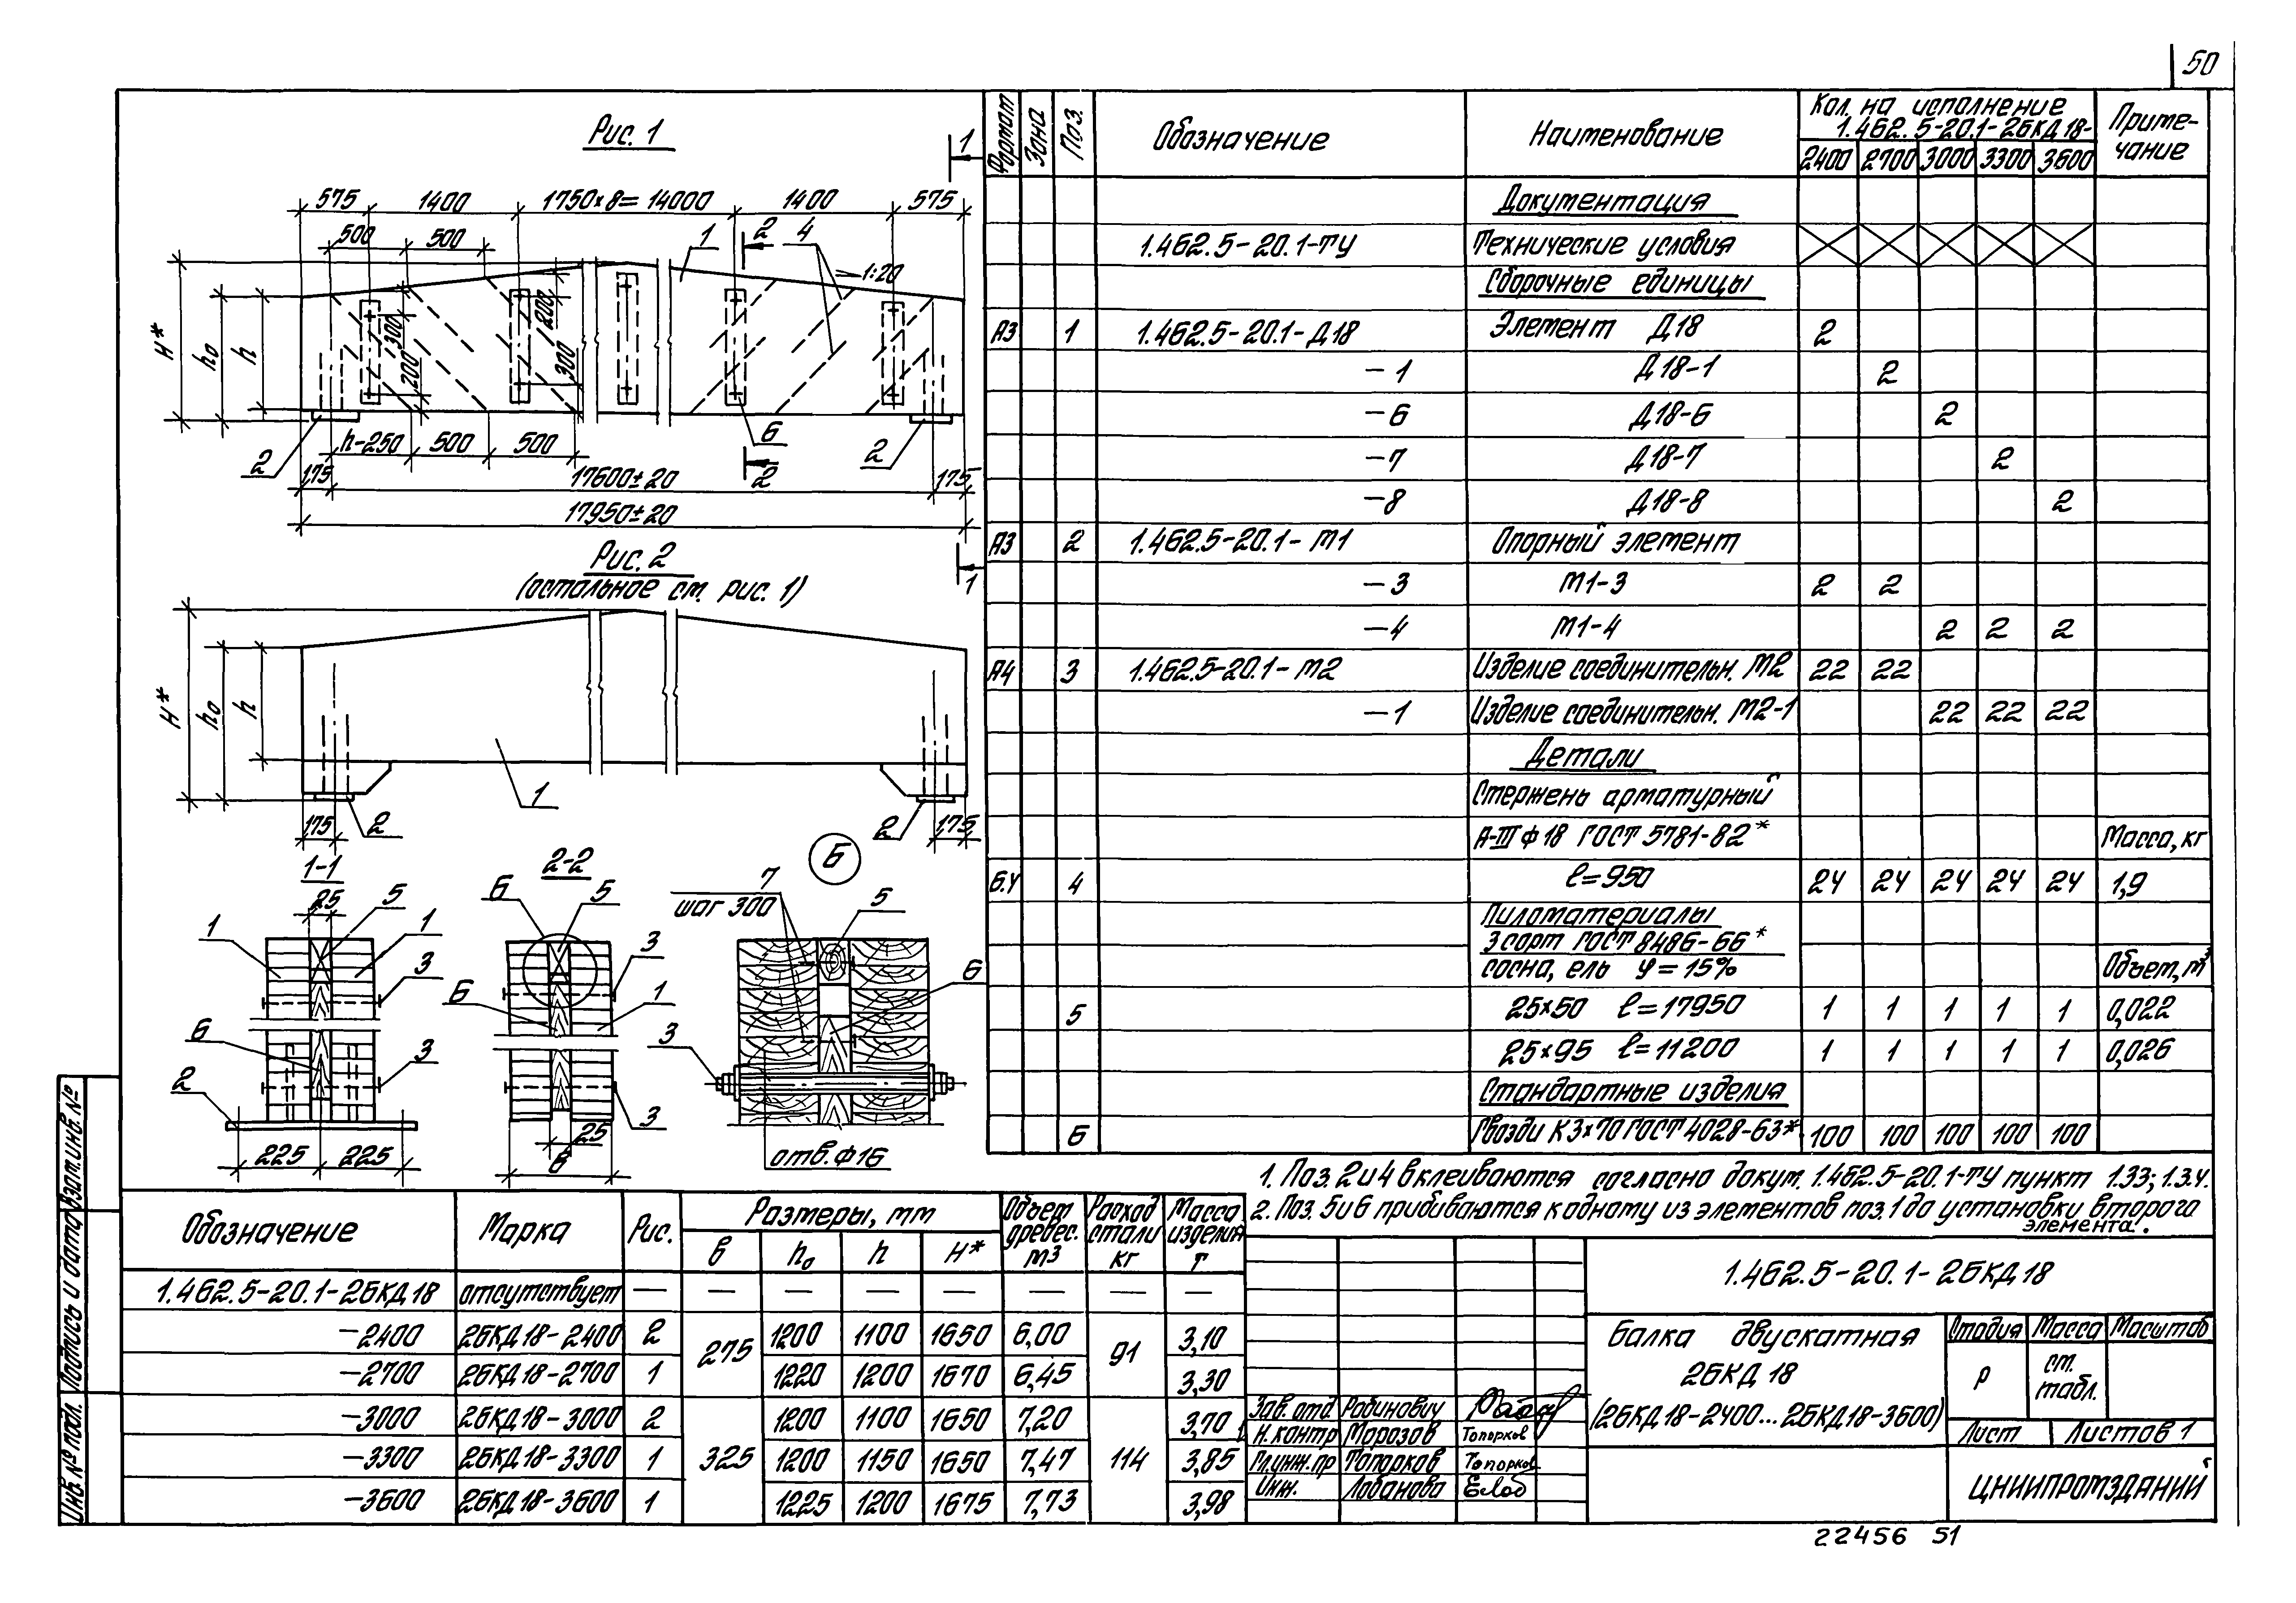 50
Рис. 1
1
575 1400 1750×8=14000 1400 575
500 500 1 2 4
1:20
H* h₀ h 300 200 200 300
2 h-250 500 500 6 2
175 17600±20 2 175
17950±20
Рис. 2
(остальное см. рис. 1)
1
H* h₀ h
1
175 2 2 175
1-1
25 5
1 1
3
6
3
2
225 225
2-2
6 5
3
6 1
3
25
в
Б
7
шаг 300
5
6
3
отв. Ф16
Формат Зона Поз. Обозначение Наименование Кол. на исполнение 1.462.5-20.1-2БКД18- Приме-чание
2400 2700 3000 3300 3600
Документация
1.462.5-20.1-ТУ Технические условия
Сборочные единицы
А3 1 1.462.5-20.1-Д18 Элемент Д18 2
-1 Д18-1 2
-6 Д18-6 2
-7 Д18-7 2
-8 Д18-8 2
А3 2 1.462.5-20.1-М1 Опорный элемент
-3 М1-3 2 2
-4 М1-4 2 2 2
А4 3 1.462.5-20.1-М2 Изделие соединительн. М2 22 22
-1 Изделие соединительн. М2-1 22 22 22
Детали
Стержень арматурный
А-III Ф18 ГОСТ 5781-82* Масса, кг
Б.Ч 4 ℓ=950 24 24 24 24 24 1,9
Пиломатериалы
3 сорт ГОСТ 8486-66*
сосна, ель φ=15% Объем, м³
5 25×50 ℓ=17950 1 1 1 1 1 0,022
25×95 ℓ=11200 1 1 1 1 1 0,026
Стандартные изделия
6 Гвозди К3×70 ГОСТ 4028-63* 100 100 100 100 100
1. Поз. 2 и 4 вклеиваются согласно докум. 1.462.5-20.1-ТУ пункт 1.33; 1.3.4.
2. Поз. 5 и 6 прибиваются к одному из элементов поз. 1 до установки второго
элемента.
Обозначение Марка Рис. Размеры, мм Объем древес. м³ Расход стали кг Масса изделия т
в h₀ h H*
1.462.5-20.1-2БКД18 отсутствует — — — — — — — —
-2400 2БКД18-2400 2 275 1200 1100 1650 6,00 91 3,10
-2700 2БКД18-2700 1 1220 1200 1670 6,45 3,30
-3000 2БКД18-3000 2 325 1200 1100 1650 7,20 114 3,70
-3300 2БКД18-3300 1 1200 1150 1650 7,47 3,85
-3600 2БКД18-3600 1 1225 1200 1675 7,73 3,98
1.462.5-20.1-2БКД18
Балка двускатная
2БКД18
(2БКД18-2400...2БКД18-3600)
Стадия Масса Масштаб
Р см. табл.
Лист Листов 1
ЦНИИПРОМЗДАНИЙ
Зав. отд. Рабинович
Н. контр Морозов Топорков
Гл.инж.пр Топорков Топорков
Инж. Лобанова
Инв. № подл. Подпись и дата Взам. инв. №
22456 51